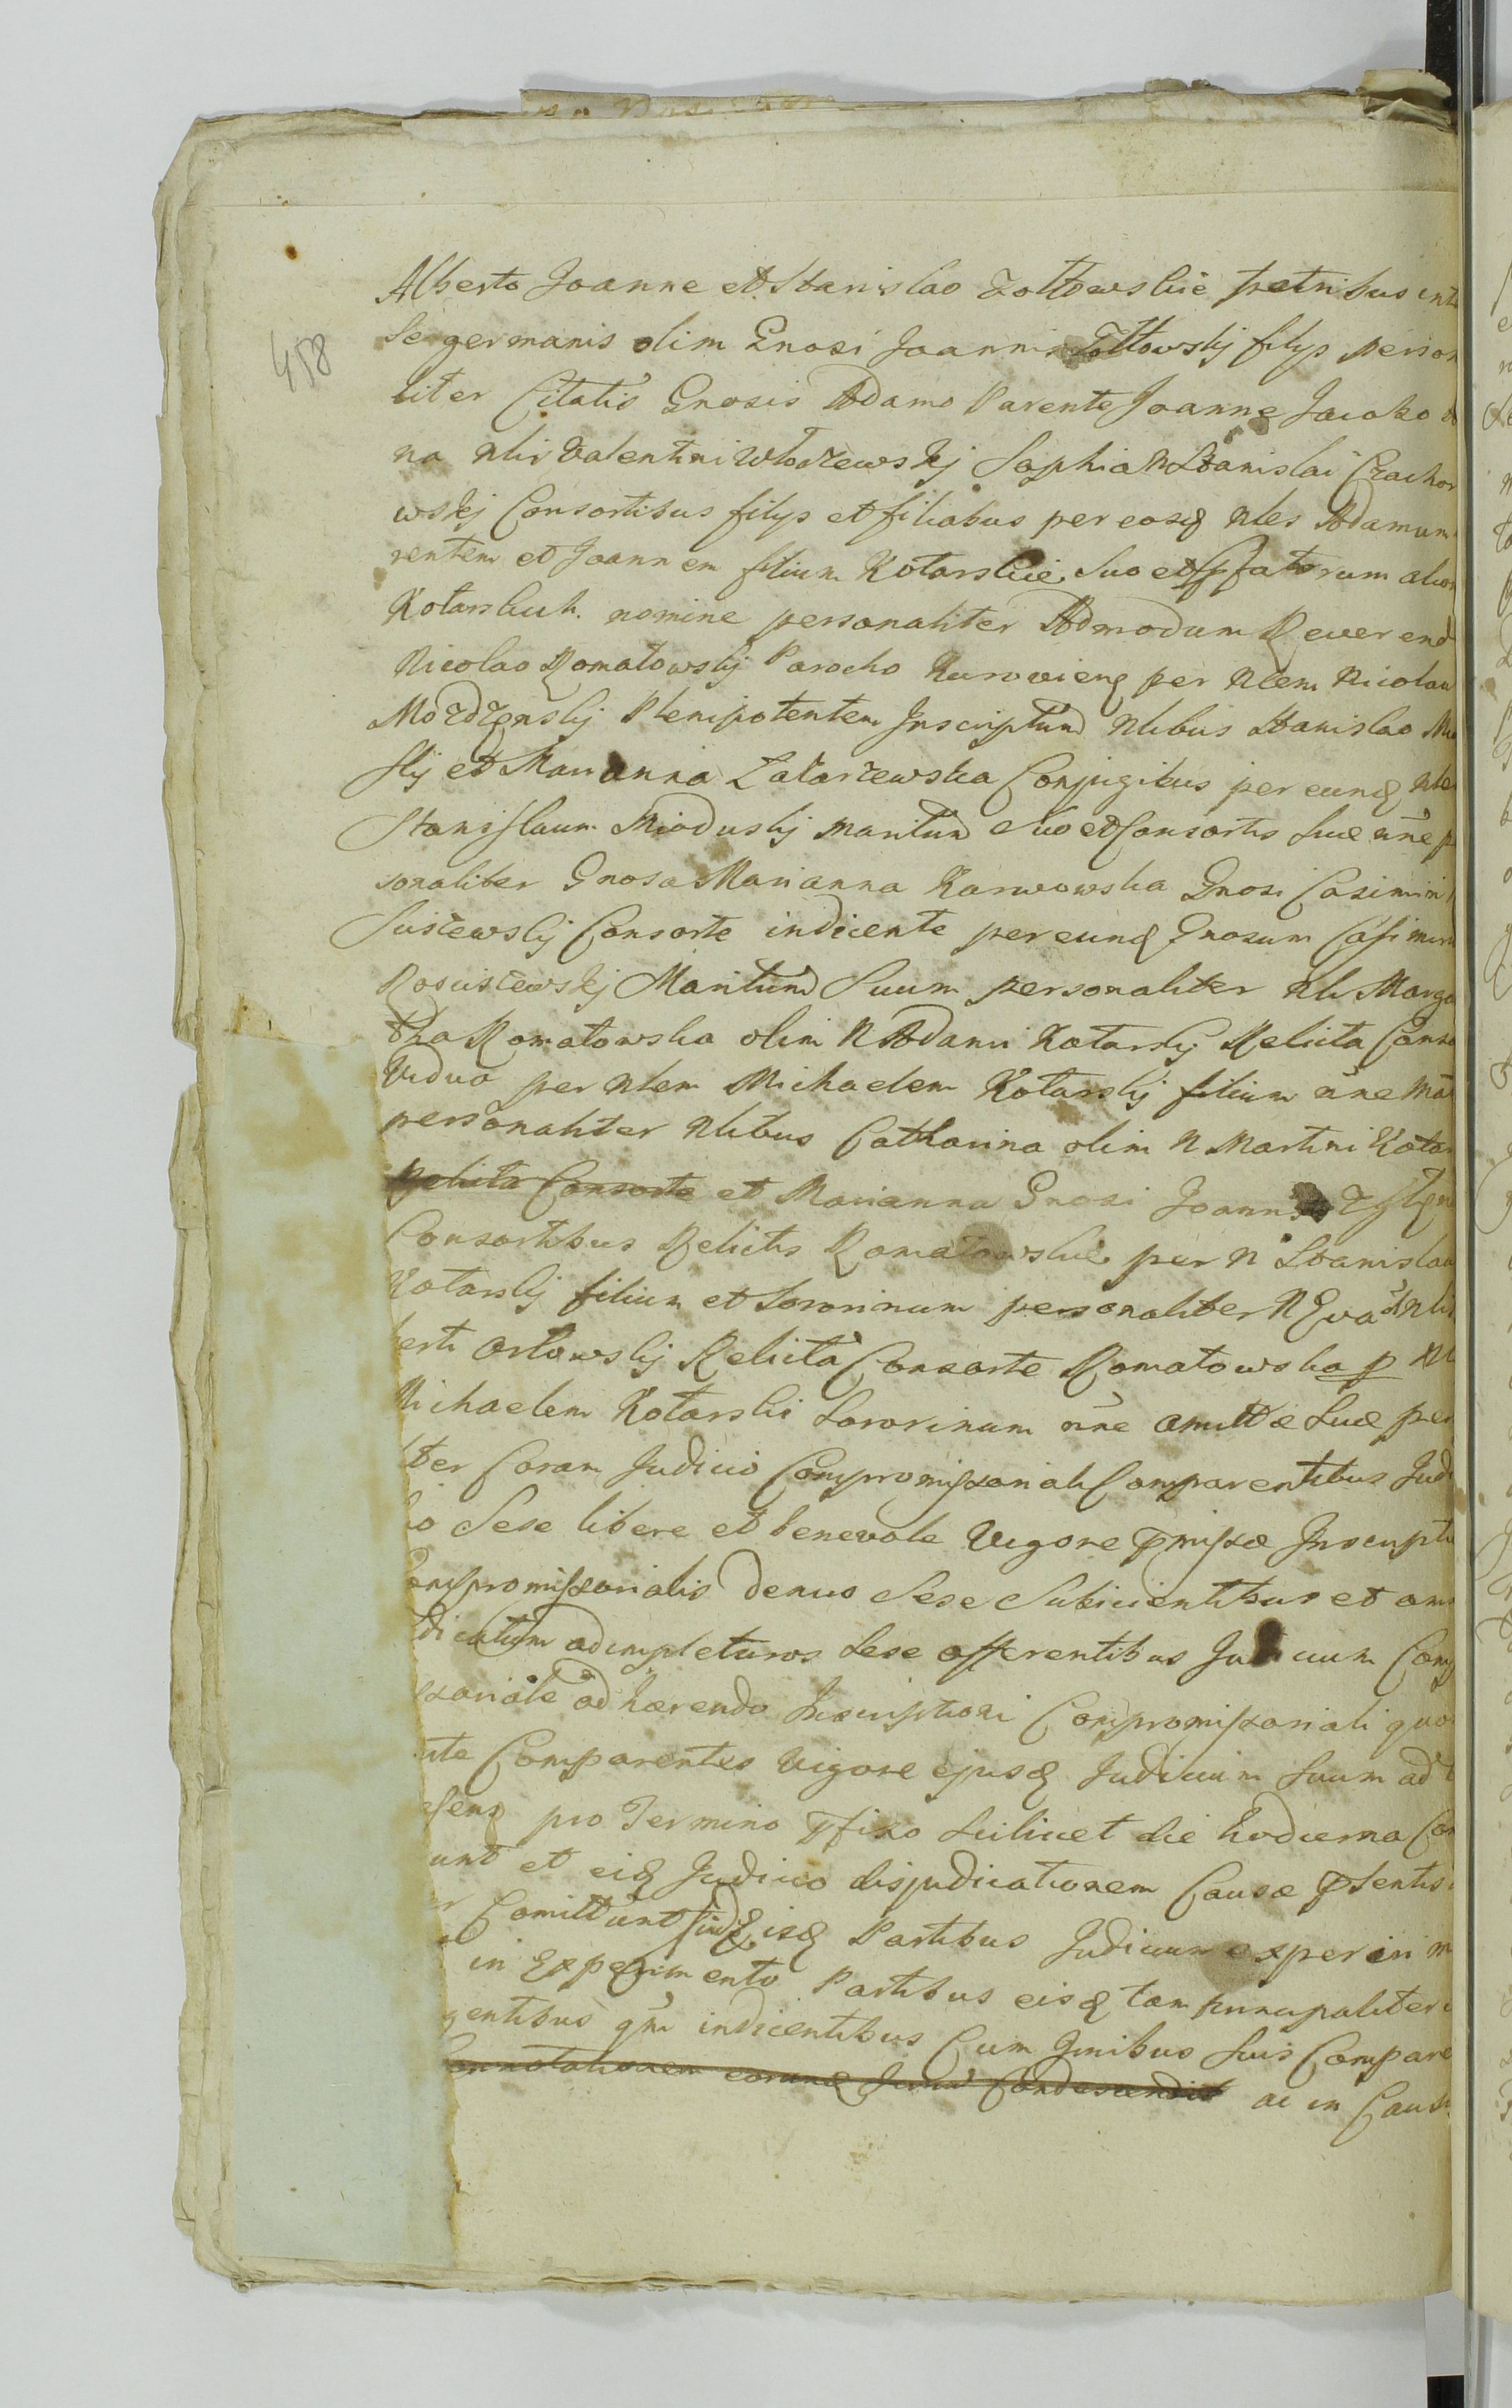 458
Alberto Joanne et Stanislao Zołtowskie fratribus inte
se germanis olim Gnosi Joannis Zołtowskij filys person
liter Citatis Gnosis Adamo Parente Joanne Jacobo
na Nlis Valentini Włodzewskj Sophia N Stanislai Czachor
wskj Consortibus filys et filiabus per eosq Nles Adamum
rentem et Joannem filium Kotarskie suo et pfatorum alior
Kotarskich nomine personaliter Admodum Reverend
Nicolao Romatowskj Parocho Kurovieng per Nlem Nicolau
Mozdzenskj Plenipotentem Inscriptum Nlibus Stanislao Mio
skj et Marianna Zatarzewska Conjugibus per eunq Nle
Stanislaum Mioduskj maritum suo et Consortis suæ nne p
sonaliter Gnosa Marianna Karwowska Gnosi Casimiri
Suscewskj Consorte indicente per eunq Gnosum Casimiru
Rosciscewskj Maritum Suum personaliter Nli Marga
Romatowska olim N Adami Kotarskj Relicta Conso
Vidua per Nlem Michaelem Kotarskj filium nne Ma
personaliter Nlibus Catharina olim N Martini Kotar
Relicta Consorte et Marianna Gnosi Joannis
Consortibus Relictis Romatowskie per N Stanislau
Kotarskj filium et Sororinum personaliter N Eva
berti Orłowskj Relicta Consorte Romatowska p Nl
Michaelem Kotarski Sororinum nne amittæ suæ per
liter Coram Judicio Compromissoriali Comparentibus Judi
io Sese libere et benevole Vigore pmissæ Inscripti
ompromissorialis denuo Sese Subicientibus et om
dicatum adimpleturos sese offerentibus Judicium Comp
ssoriale adhærendo Inscriptioni Compromissoriali quo
nte Comparentes Vigore ejusq Judicium suum ad
esens pro Termino pfixo scilicet die hodierna Con
unt et eiq Judicio disjudicationem Causæ psentis
r Comittunt eisq Partibus Judicium experiri m
in Experimento Partibus eisq tam principaliter
gentibus qm indicentibus Cum Gnibus suis Compare
Connotationem eorunq Condescendit ac in Causa